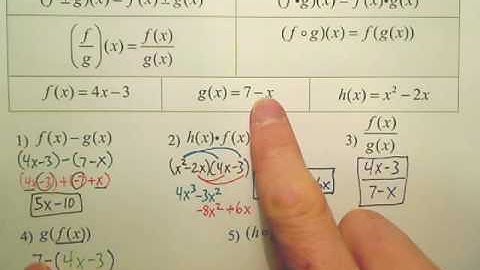 (f ± g)(x) = f(x) ± g(x)
(f • g)(x) = f(x) • g(x)
(f/g)(x) = f(x)/g(x)
(f ∘ g)(x) = f(g(x))
f(x) = 4x − 3
g(x) = 7 − x
h(x) = x² − 2x
1) f(x) − g(x)
(4x−3) − (7−x)
(4x−3)+(−7+x)
5x−10
2) h(x) • f(x)
(x²−2x)(4x−3)
4x³−3x²
−8x²+6x
6x
3) f(x)/g(x)
4x−3
7−x
4) g(f(x))
7−(4x−3)
5) (h